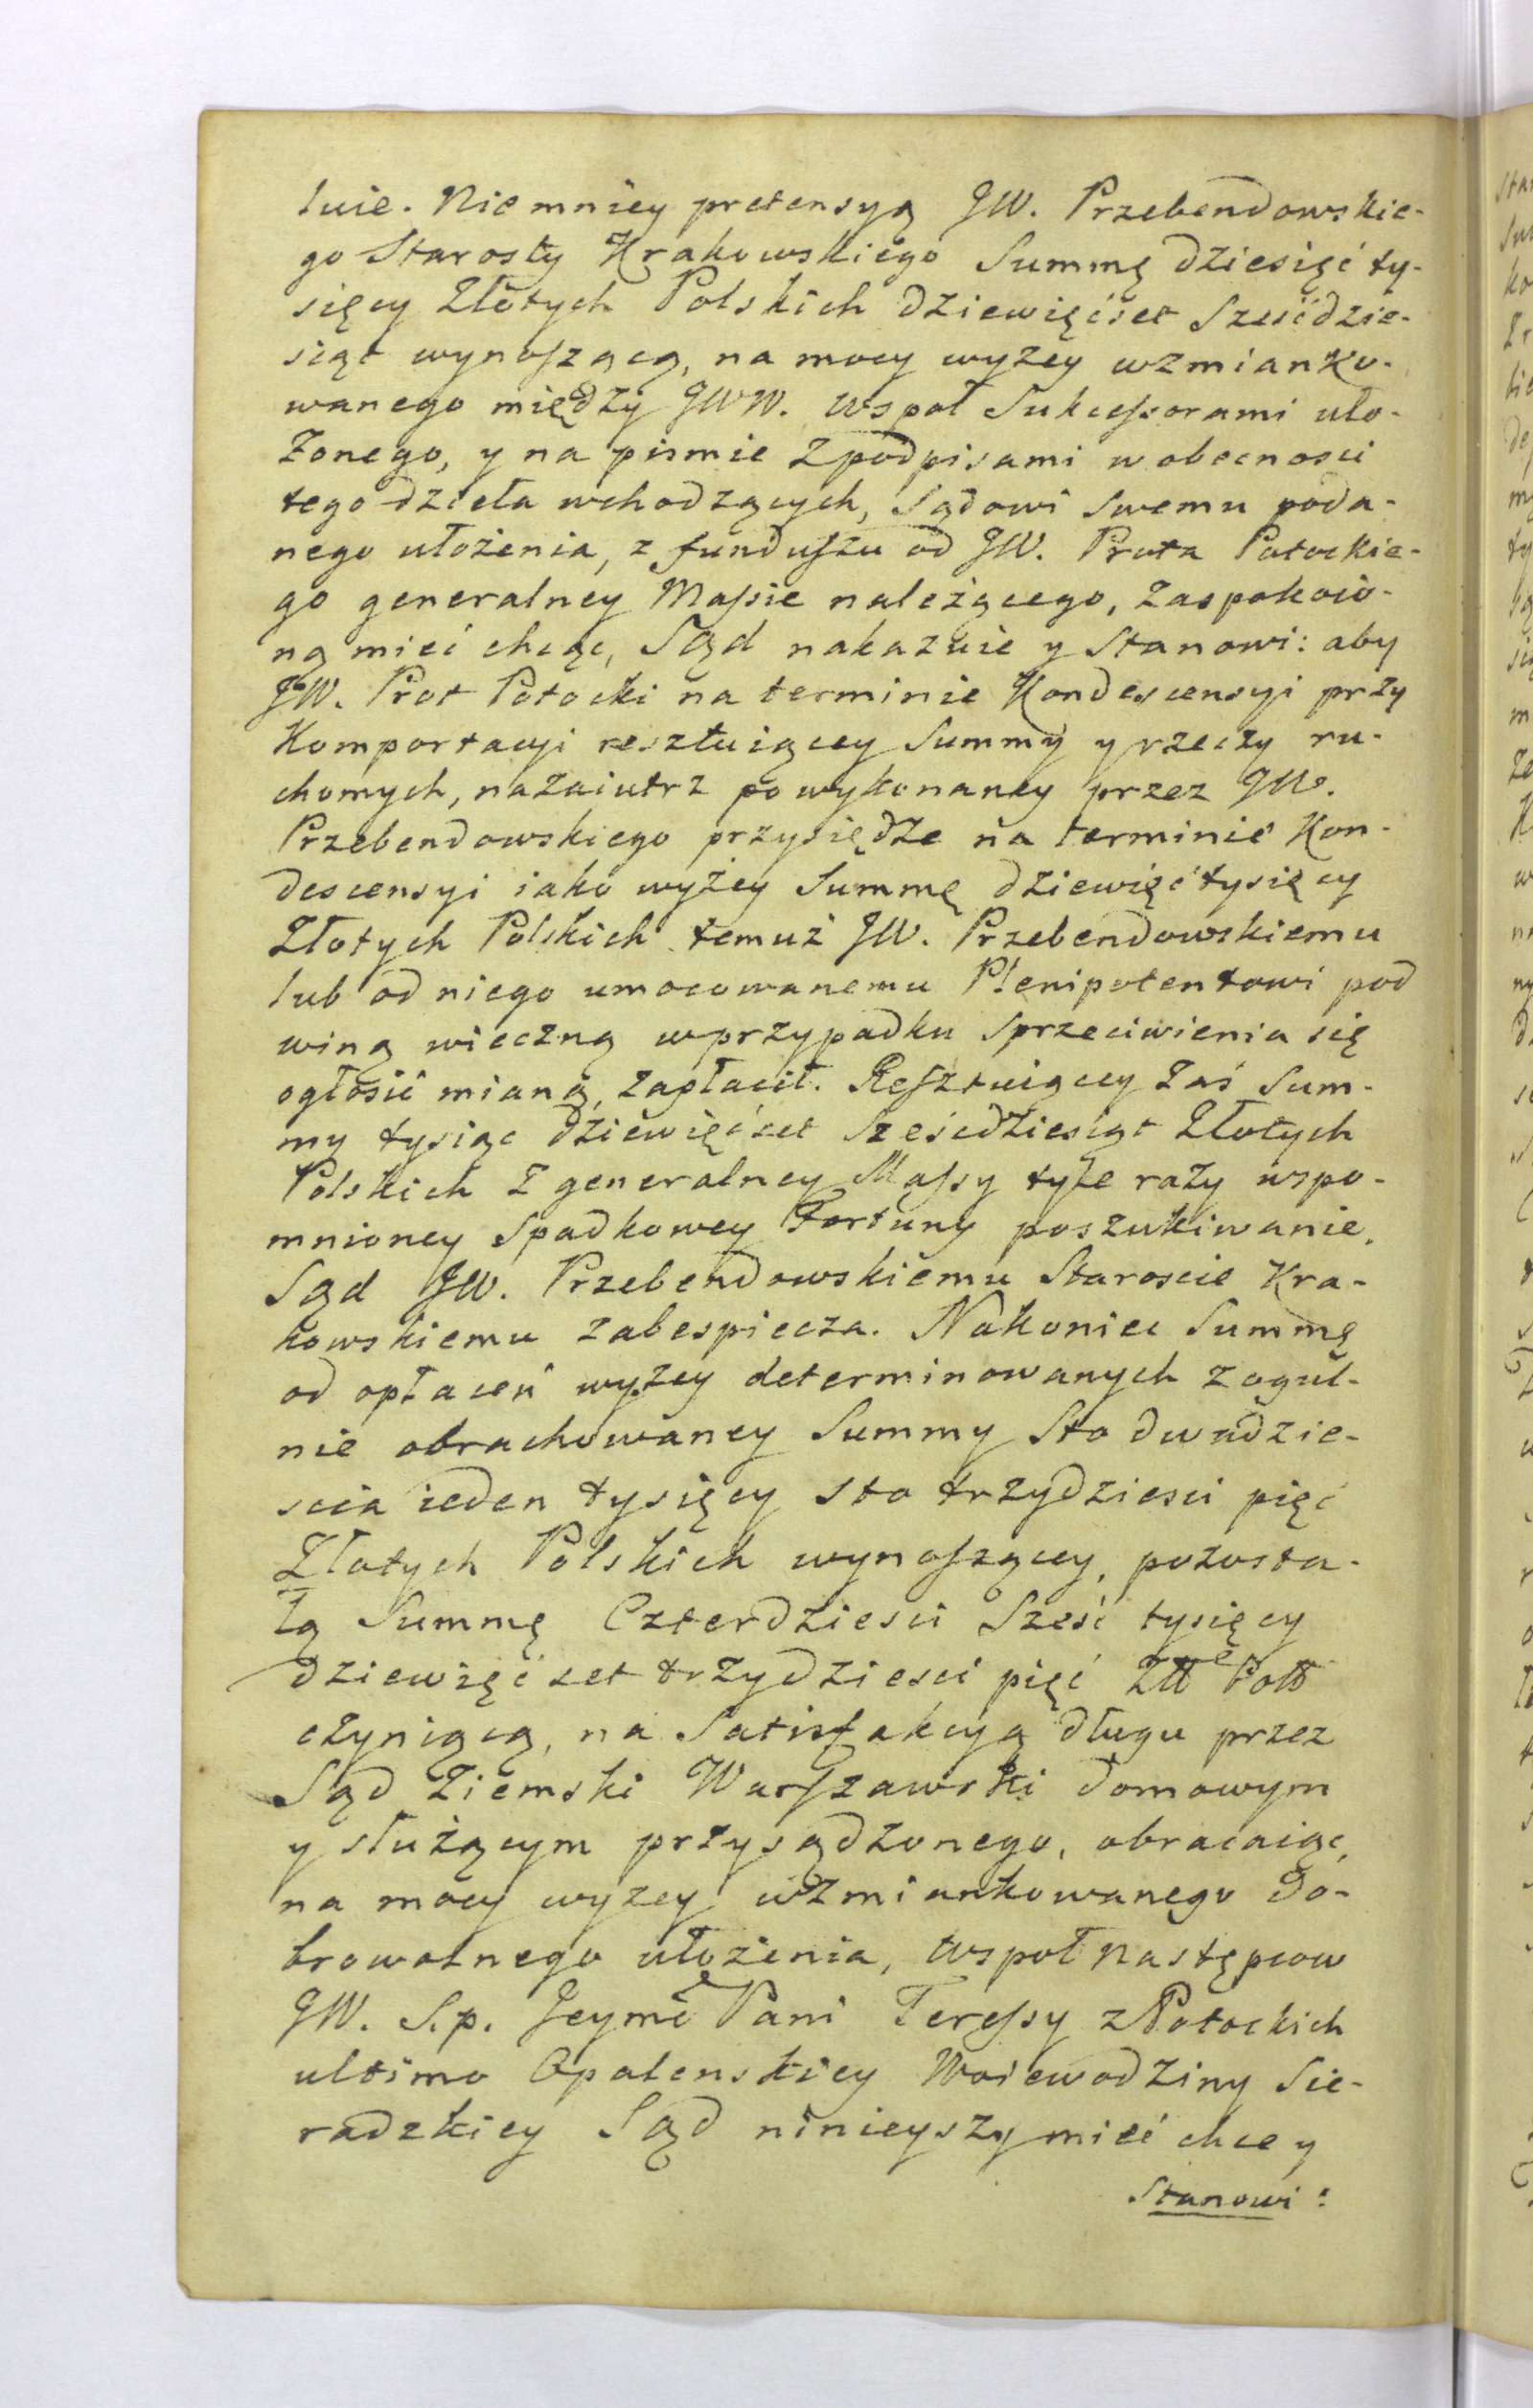 luie. Niemniey pretensyą JW. Przebendowskie-
go Starosty Krakowskiego Summę dziesięć ty-
sięcy Złotych Polskich dziewięćset sześćdzie-
siąt wynoszącą, na mocy wyżey wzmianko-
wanego między JWW. Wspoł Sukcessorami uło-
żonego, y na pismie z podpisami w obecnosci
tego dzieła wchodzących, Sądowi swemu poda-
nego ułożenia, z funduszu od JW. Prota Potockie-
go generalney Massie należącego, zaspokoio-
ną mieć chcąc, Sąd nakazuie y stanowi: aby
JW. Prot Potocki na terminie Kondescensyi przy
Komportacyi resztuiącey Summy y rzeczy ru-
chomych, nazaiutrz po wykonaney przez JW.
Przebendowskiego przysiędze na terminie Kon-
descensyi iako wyżey Summę dziewięć tysięcy
Złotych Polskich temuż JW. Przebendowskiemu
lub od niego umocowanemu Plenipotentowi pod
winą wieczną w przypadku sprzeciwienia się
ogłosić mianą, zapłacił. Resztuiącey zaś Sum-
my tysiąc dziewięćset sześćdziesiąt Złotych
Polskich z generalney Massy tyle razy wspo-
mnioney spadkowey Fortuny poszukiwanie,
Sąd JW. Przebendowskiemu Staroscie Kra-
kowskiemu zabespiecza. Nakoniec Summę
od opłaceń wyżey determinowanych z ogul-
nie obrachowaney Summy sto dwudzie-
scia ieden tysięcy sto trzydziesci pięć
Złotych Polskich wynoszącey, pozosta-
łą Summę Czterdziesci sześć tysięcy
dziewięćset trzydziesci pięć Złł Poll
czyniącą, na Satisfakcyą długu przez
Sąd Ziemski Warszawski domowym
y służącym przysądzonego, obracaiąc,
na mocy wyzey wzmiankowanego do-
browolnego ułożenia, Wspoł następcow
JW. S.p. Jeymć Pani Teressy z Potockich
ultimo Opalenskiey Woiewodziny Sie-
radzkiey Sąd ninieyszy mieć chce y
Stanowi: